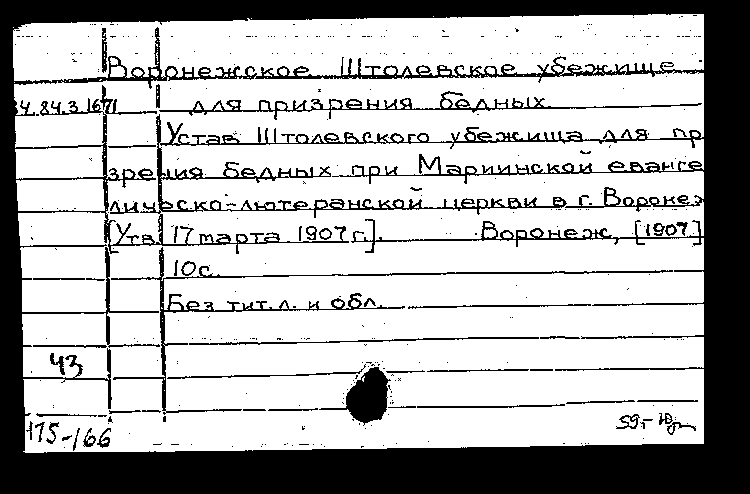 Воронежское Штолевское убежище
34.84.3.1671 для призрения бедных.
Устав Штолевского убежища для пр
зрения бедных при Мариинской еванге
лическо-лютеранской церкви в г. Воронеж
[Утв. 17 марта 1907 г.]. Воронеж, [1907]
10с.
Без тит. л. и обл.
43
175-166
59г